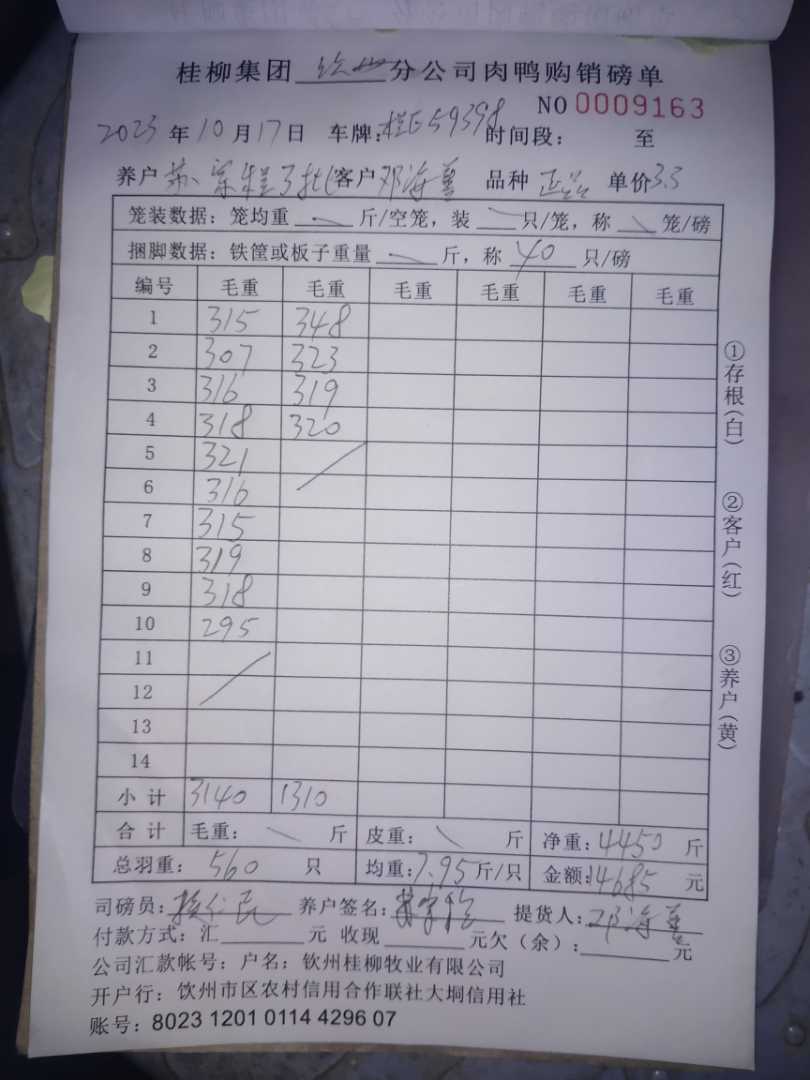 桂柳集团 钦州 分公司肉鸭购销磅单
NO 0009163
2023 年 10 月 17 日 车牌: 59398 时间段: 至
养户 苏 客户 邓海 品种 单价 3.3
笼装数据: 笼均重 斤/空笼, 装 只/笼, 称 笼/磅
捆脚数据: 铁筐或板子重量 斤, 称 40 只/磅
编号 毛重 毛重 毛重 毛重 毛重 毛重
1 315 348
2 307 323
3 316 319
4 318 320
5 321
6 316
7 315
8 319
9 318
10 295
11
12
13
14
小计 3140 1310
合计 毛重: 斤 皮重: 斤 净重: 4450 斤
总羽重: 560 只 均重: 7.95 斤/只 金额: 14685 元
司磅员: 民 养户签名: 提货人: 邓海
付款方式: 汇 元 收现 元欠(余): 元
公司汇款帐号: 户名: 钦州桂柳牧业有限公司
开户行: 钦州市区农村信用合作联社大垌信用社
账号: 8023 1201 0114 4296 07
①存根(白)
②客户(红)
③养户(黄)